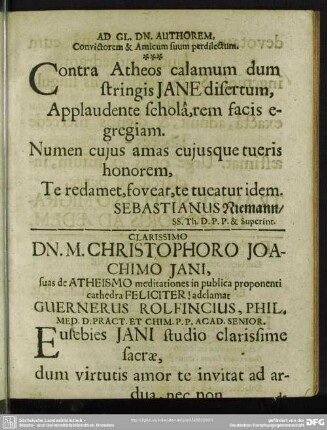 AD GL. DN. AUTHOREM,
Convictorem & Amicum suum perdilectum.
***
Contra Atheos calamum dum
stringis JANE disertum,
Applaudente scholâ, rem facis e-
gregiam.
Numen cujus amas cujusque tueris
honorem,
Te redamet, foveat, te tueatur idem.
SEBASTIANUS Niemann/
SS. Th. D. P. P. & Superint.
CLARISSIMO
DN. M. CHRISTOPHORO JOA-
CHIMO JANI,
suas de ATHEISMO meditationes in publica proponenti
cathedra FELICITER! adclamat
GUERNERUS ROLFINCIUS, PHIL.
MED. D. PRACT. ET CHIM. P. P. ACAD. SENIOR.
Eusebies JANI studio clarissime
sacræ,
dum virtutis amor te invitat ad ar-
dua, nec non